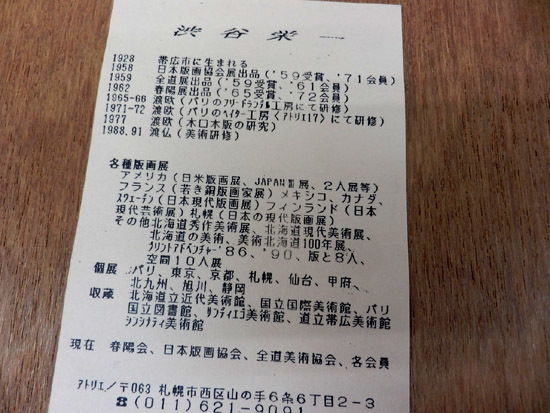 渋谷栄一
1928 帯広市に生まれる
1958 日本版画協会展出品('59受賞、'71会員)
1959 全道展出品('59受賞、'61会員)
1962 春陽展出品('65受賞、'72会員)
1965-66 渡欧(パリのフリードランデル工房にて研修)
1971-72 渡欧(パリのヘイター工房<アトリエ17>にて研修)
1977 渡欧(木口木版の研究)
1988.91 渡仏(美術研修)
各種版画展
アメリカ(日米版画展、JAPAN 展、2人展等)
フランス(若き銅版画家展)メキシコ、カナダ、
スウェーデン(日本現代版画展)フィンランド(日本
現代芸術展)札幌(日本の現代版画展)
その他北海道秀作美術展、北海道現代美術展、
北海道の美術、美術北海道100年展、
プリントアドベンチャー'86、'90、版と8人、
空間10人展
個展 パリ、東京、京都、札幌、仙台、甲府、
北九州、旭川、静岡
収蔵 北海道立近代美術館、国立国際美術館、パリ
国立図書館、サンディエゴ美術館、道立帯広美術館
シンシナティ美術館
現在 春陽会、日本版画協会、全道美術協会、各会員
アトリエ/〒063 札幌市西区山の手6条6丁目2-3
☎(011)621-9091